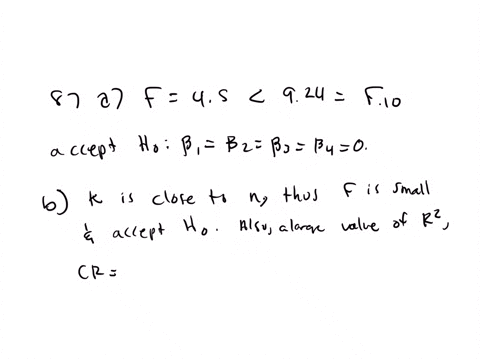 8) a) F = 4.5 < 9.24 = F.10
accept H0: β1 = β2 = β3 = β4 = 0.
b) k is close to n, thus F is small
& accept H0. Also, a large value of R²,
CR =